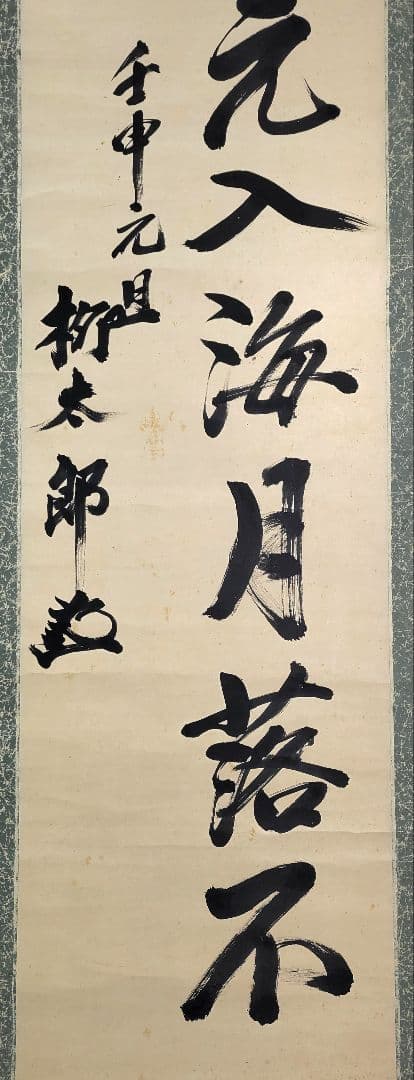 元入海月落不
壬申元旦
柳太郎